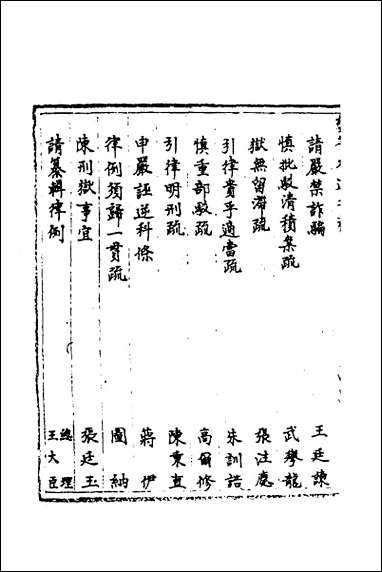 請嚴禁詐騙　王廷諫
慎批駁清積案疏　武攀龍
獄無留滯疏　張注慶
引律貴乎適當疏　朱訓誥
慎重部駁疏　高爾修
引律明刑疏　陳秉直
申嚴誣逆科條　蔣伊
律例須歸一貫疏　圖納
陳刑獄事宜　張廷玉
請纂輯律例　總理王大臣